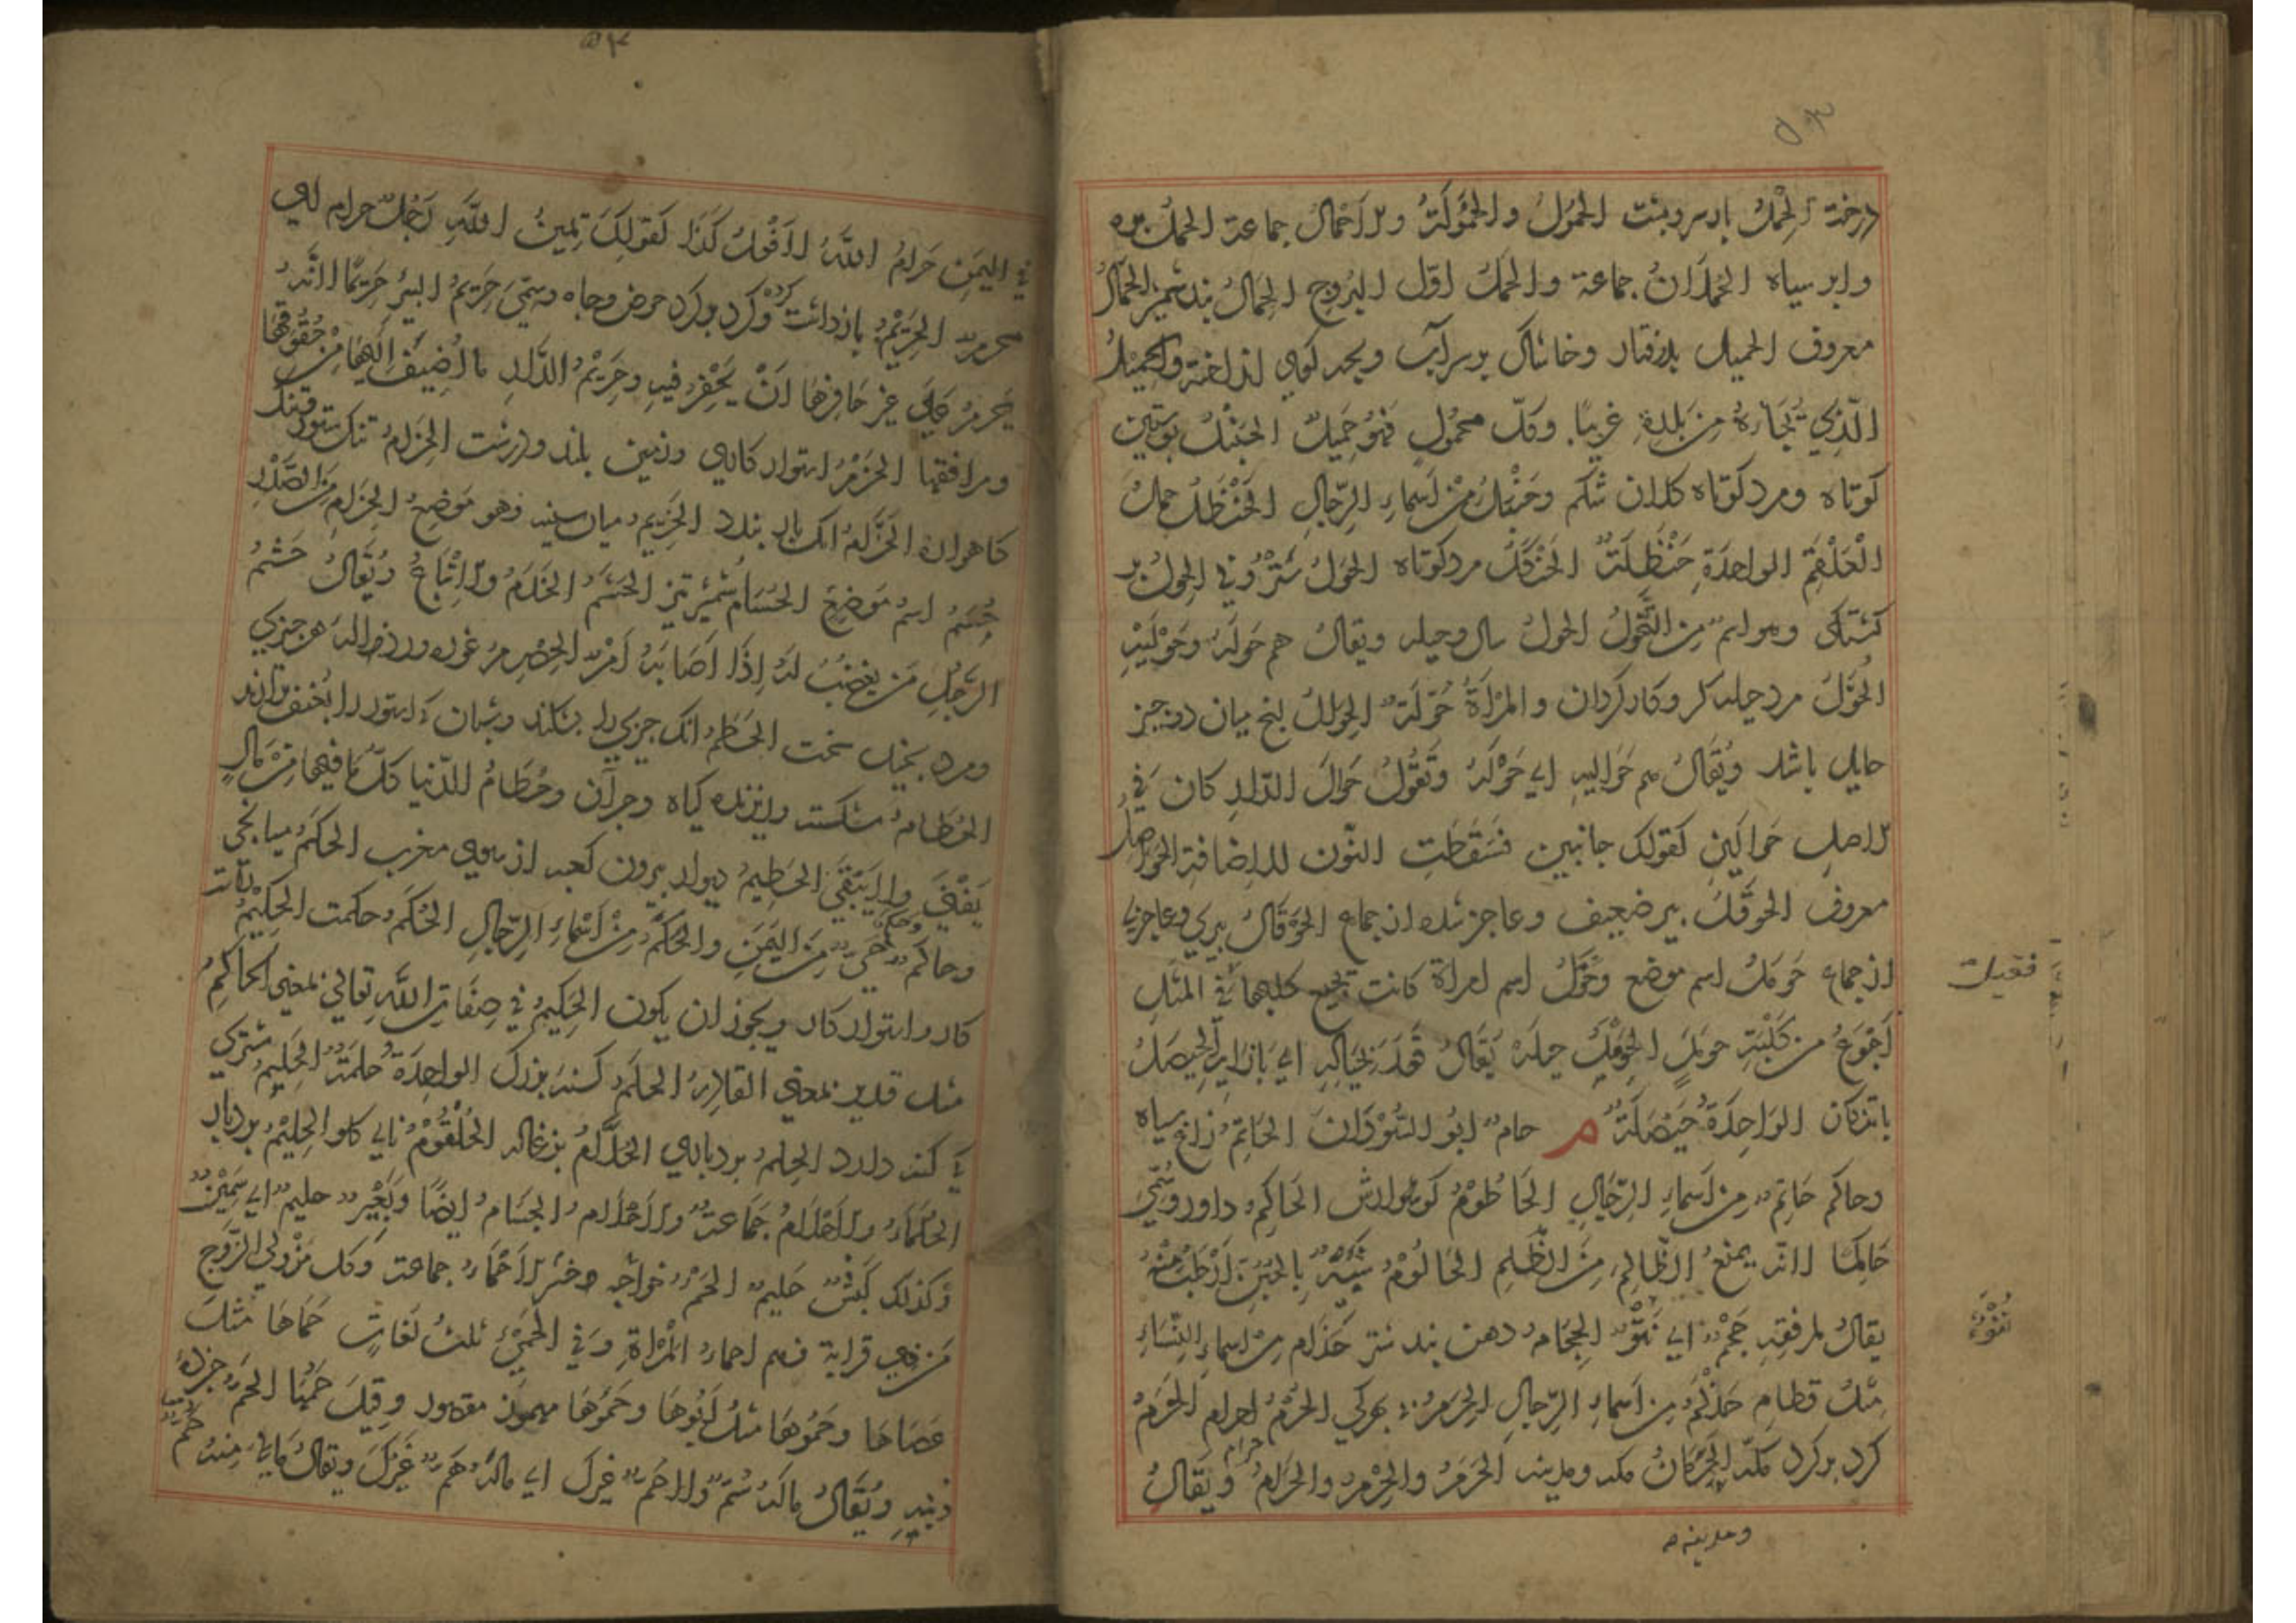 درخت الحِمْلُ بار سر و پشت الحمُولُ والحُمُولَةُ والاَحْمالُ جماعة الحملُ بره
وابر سیاه الحُملَانُ جماعة والحَمَلُ اوّل البُروج الحِمَالُ بند شمشیر الحَمّالُ
معروف الحمیل بذرفتار وخاشاک بر سر آب وبچه کوی انداخته والحَمِیْلُ
الّذِی یُجَاءُ بِهِ مِن بَلدِهِ غریبًا وکلّ محمُولٍ فهُو حَمِیلٌ الحَنْبَلُ پوستین
کوتاه ومرد کوتاه کلان شکم وحَنْبَلُ مِنْ اَسماءِ الرّجالِ الحَنْظَلُ حمل
الْعَلْقَمِ الواحِدَةِ حَنْظَلَةٌ الحَزَنْبَلُ مرد کوتاه الحَولُ
وهو اسم مِن التَّحَوُّلِ الحولُ سال وحیله ویقالُ هم حَولَهُ وحَوْلَیْهِ
الحُوَّلُ مرد حیله کر وکار کردان والمَرْاَةُ حُوَّلَةٌ میان دو چیز
حایل باشد ویُقَالُ هم حَوَالَیهِ ای حَوْلَهُ وتَقُولُ حَوالَ الدّارِ کان فِی
الاصلِ حَوالَینِ کقولک جانبین فسَقَطتِ النّون للاِضافة الحَواصِلُ
معروف الحوقَلُ پیر ضعیف وعاجز شده از جماع الحَوقالُ پیری وعاجزی
از جماع حَومَلُ اسم موضع وحَوْمَلُ اسم امراة کانت تجیع کلبها فی المَثَلِ
اَجْوَعُ من کَلْبَةِ حومَلٍ حیله یُقَالُ قَعَدَ بحِیالِهِ ای بازائِهِ الحَیصَلُ
باتنکان الوَاحِدَةُ حَیصَلَةٌ م حام ابُو السُّوْدَانِ الحَاتِمُ زاغ سیاه
وحاکم حَاتِم مِن اَسماءِ الرِّجَالِ الحَاطُومُ کوارش الحَاکِمُ داور وسُمّیَ
حَاکِمًا لانّه یمنعُ الظّالِمَ مِنَ الظّلمِ الحَالُومُ شَبِیْهٌ بِالجُبُنِّ
یقالُ لمرفقِهِ حَجْمٌ ای نُتُوٌّ الحِجَامُ دهن بند شتر حَذَام مِن اسماءِ النِّسَاءِ
مِثلُ قطام حَذْلَمُ مِن اَسماءِ الرّجالِ الحرم الحُرُمُ احرام الحَرَمُ
کرد بر کرد مکّه الحَرَمَانُ مکه ومدینه الحَرَمُ والحِرْمُ والحَرامُ حرام ویُقَالُ
فقیلت
نُتُوءٌ
ومدینه
فی الیَمِینِ حَرامُ اللّٰهِ لا اَفْعَلُ کَذَا کَقولِکَ یَمِینُ اللّٰهِ رَجُلٌ حرام ای
محرم الحَرِیْمُ بازداشت کرده وکرد بر کرد حوض وچاه وسمّی حَرِیمُ البئرِ حَرِیمًا لانّه
یحرمُ عَلی غیرِ حَافِرِهَا اَنْ یَحْفِرَ فیهِ وحَرِیْمُ الدَّارِ ما اُضِیفَ اِلَیهَا مِنْ حُقُوقِهَا
ومرافقها الحَزْمُ استوار کاری وزمین بلند ودرشت الحِزامُ تنک ستور وبند
کاهواره الحَزَّامُ انک بار بندد الحَزِیم میان سینه وهو مَوضِعُ الحِزَامِ مِنَ الصَّدْرِ
حُسُمُ اسمُ مَوضِعٍ الحُسَامُ شمشیر تیز الحَشَمُ الخَدَمُ والاَتْبَاعُ ویُقَالُ حَشَمُ
الرّجُلِ مَن یغضبُ لَهُ اِذَا اَصَابَهُ اَمْرٌ الحِصْرِمُ غوره ورذالة هر چیزی
ومرد بخیل سخت الحُطَمُ انک چیزی را بشکند وشبان کی ستور را بعنف براند
الحُطَامُ شکسته وریزیده کیاه وجز آن وحُطَامُ الدّنیا کلّ مَا فیها مِنْ مَالٍ
یَفْنی ولا یَبْقَی الحَطِیمُ دیوار بیرون کعبه از سوی مغرب الحَکَمُ میانجی
وحاکم وحَکَمٌ حَیٌّ مِنَ الیَمَنِ والحَکَمُ مِنْ اَسْماءِ الرِّجَالِ الحُکْمُ وحکمت الحَکِیْمُ راست
کار واستوار کار ویجوز ان یکون الحَکِیمُ فی صِفَاتِ اللّٰهِ تعالی بمعنی الحاکِمِ
مثل قدیر بمعنی القادِرِ الحَلَمُ کنه بزرک الواحِدَةُ حَلَمَةٌ الحَلِیمُ شتری
کی کنه دارد الحِلمُ بردباری الحُلَّامُ بزغاله الحُلْقُوْمُ نای کلو الحَلِیْمُ بردبار
الحُلَمَاءُ والاَحْلَامُ جَمَاعَةٌ والاَحْلام الجسَامُ ایضًا وبَعِیْرٌ حلیم ای سَمِیْنٌ
وکذلک کَبشٌ حَلیم الحَمْءُ خواجه وخسر الاَحْمَاءُ جماعة وکل مَنْ وَلِیَ الزَّوج
مَن ذوی قرابة فهم احماءُ المَرْاةِ وفی الحَمِئ ثلثُ لغاتٍ حَمَاها مثلُ
عَصَاهَا وحَمُوهَا مثلُ اَبُوهَا وحَمُؤهَا مهموز مقصور وقِیلَ حَمْئُهَا الحَمّ
دنبه ویُقَالُ مالَهُ سُمٌّ ولا حُمٌّ غیرک ای مالَهُ هَمٌّ غَیْرَکَ ویقالُ مَا لِی مِنهُ حَمٌّ